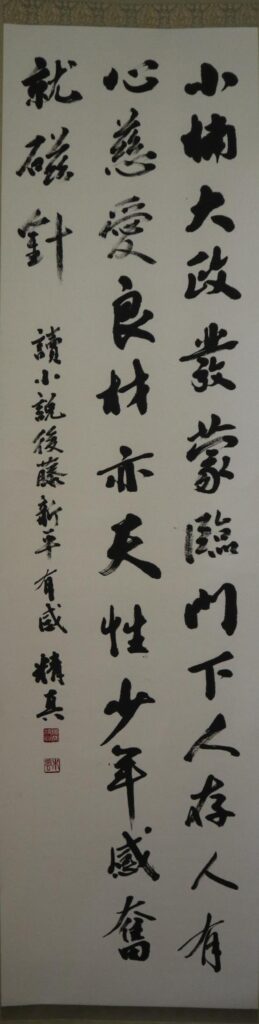 小楠大政發蒙臨門下人存人有
心慈愛良材亦天性少年感奮
就磁針
讀小說後藤新平有感 精真